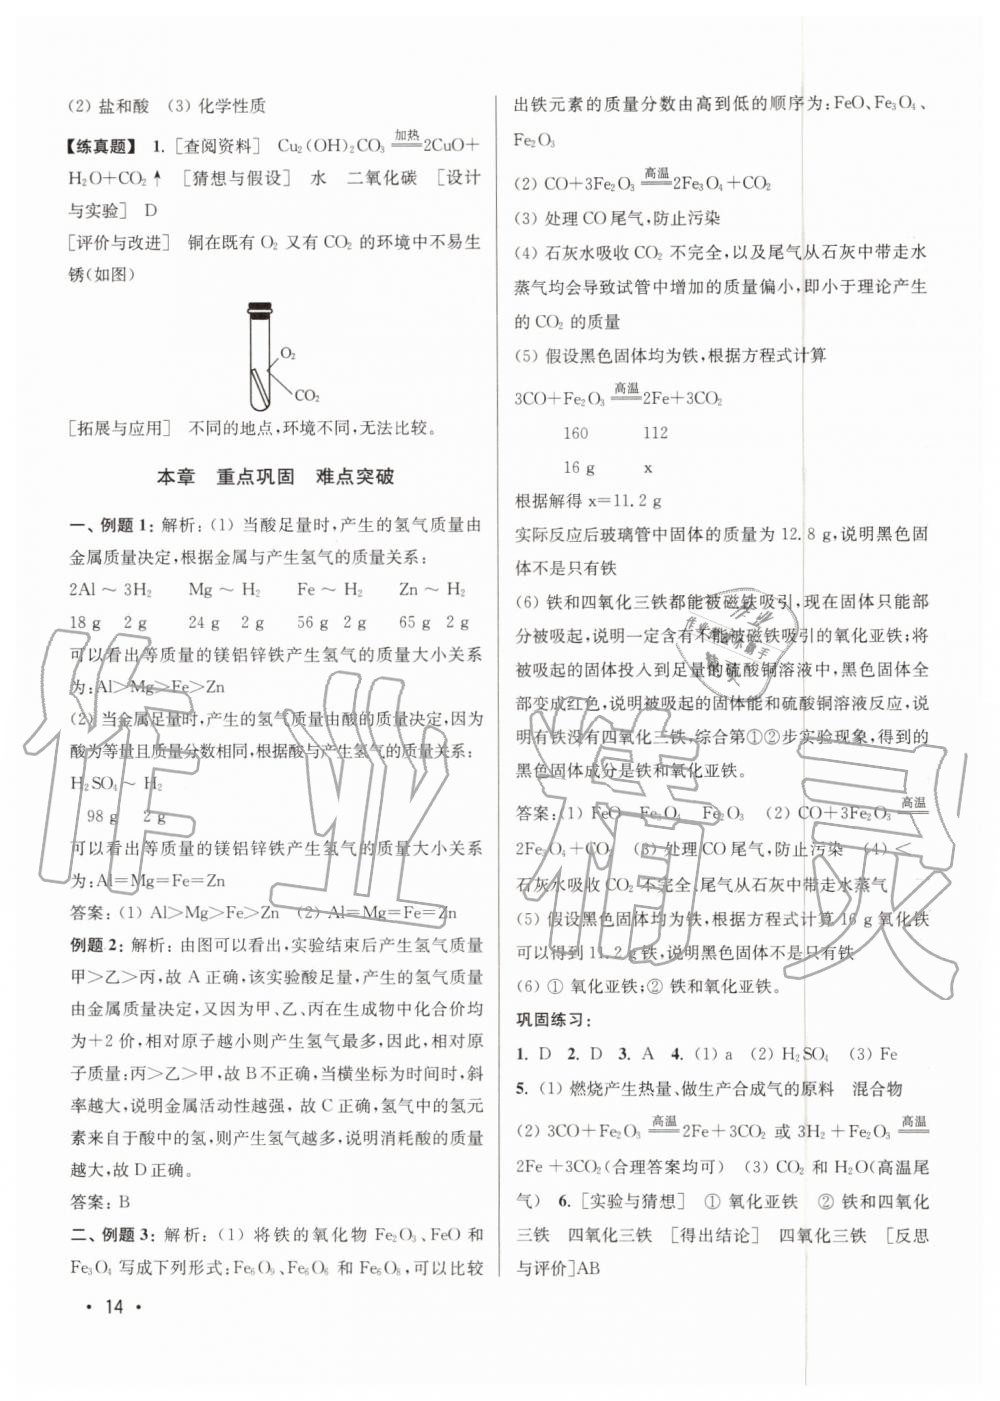 (2) 盐和酸　(3) 化学性质
【练真题】 1. [查阅资料]　Cu₂(OH)₂CO₃ 加热 2CuO+
H₂O+CO₂↑　[猜想与假设]　水　二氧化碳　[设计
与实验]　D
[评价与改进]　铜在既有 O₂ 又有 CO₂ 的环境中不易生
锈(如图)
O₂
CO₂
[拓展与应用]　不同的地点,环境不同,无法比较。
本章　重点巩固　难点突破
一、例题 1: 解析: (1) 当酸足量时,产生的氢气质量由
金属质量决定,根据金属与产生氢气的质量关系:
2Al ~ 3H₂　Mg ~ H₂　Fe ~ H₂　Zn ~ H₂
18 g　2 g　24 g　2 g　56 g　2 g　65 g　2 g
可以看出等质量的镁铝锌铁产生氢气的质量大小关系
为:Al>Mg>Fe>Zn
(2) 当金属足量时,产生的氢气质量由酸的质量决定,因为
酸为等量且质量分数相同,根据酸与产生氢气的质量关系:
H₂SO₄ ~ H₂
98 g　2 g
可以看出等质量的镁铝锌铁产生氢气的质量大小关系
为:Al=Mg=Fe=Zn
答案: (1) Al>Mg>Fe>Zn　(2) Al=Mg=Fe=Zn
例题 2: 解析: 由图可以看出,实验结束后产生氢气质量
甲>乙>丙,故 A 正确,该实验酸足量,产生的氢气质量
由金属质量决定,又因为甲、乙、丙在生成物中化合价均
为+2 价,相对原子越小则产生氢气最多,因此,相对原
子质量:丙>乙>甲,故 B 不正确,当横坐标为时间时,斜
率越大,说明金属活动性越强, 故 C 正确,氢气中的氢元
素来自于酸中的氢,则产生氢气越多,说明消耗酸的质量
越大,故 D 正确。
答案: B
二、例题 3: 解析: (1) 将铁的氧化物 Fe₂O₃、FeO 和
Fe₃O₄ 写成下列形式:Fe₆O₉、Fe₆O₆ 和 Fe₆O₈,可以比较
• 14 •
出铁元素的质量分数由高到低的顺序为:FeO、Fe₃O₄、
Fe₂O₃
(2) CO+3Fe₂O₃ 高温 2Fe₃O₄+CO₂
(3) 处理 CO 尾气,防止污染
(4) 石灰水吸收 CO₂ 不完全,以及尾气从石灰中带走水
蒸气均会导致试管中增加的质量偏小,即小于理论产生
的 CO₂ 的质量
(5) 假设黑色固体均为铁,根据方程式计算
3CO+Fe₂O₃ 高温 2Fe+3CO₂
160　112
16 g　x
根据解得 x=11.2 g
实际反应后玻璃管中固体的质量为 12.8 g,说明黑色固
体不是只有铁
(6) 铁和四氧化三铁都能被磁铁吸引,现在固体只能部
分被吸起,说明一定含有不能被磁铁吸引的氧化亚铁;将
被吸起的固体投入到足量的硫酸铜溶液中,黑色固体全
部变成红色,说明被吸起的固体能和硫酸铜溶液反应,说
明有铁没有四氧化三铁,综合第①②步实验现象,得到的
黑色固体成分是铁和氧化亚铁。
答案: (1) FeO　Fe₃O₄　Fe₂O₃　(2) CO+3Fe₂O₃ 高温
2Fe₃O₄+CO₂　(3) 处理 CO 尾气,防止污染　(4) <
石灰水吸收 CO₂ 不完全、尾气从石灰中带走水蒸气
(5) 假设黑色固体均为铁,根据方程式计算 16 g 氧化铁
可以得到 11.2 g 铁,说明黑色固体不是只有铁
(6) ① 氧化亚铁;② 铁和氧化亚铁。
巩固练习:
1. D　2. D　3. A　4. (1) a　(2) H₂SO₄　(3) Fe
5. (1) 燃烧产生热量、做生产合成气的原料　混合物
(2) 3CO+Fe₂O₃ 高温 2Fe+3CO₂ 或 3H₂+Fe₂O₃ 高温
2Fe+3CO₂(合理答案均可)　(3) CO₂ 和 H₂O(高温尾
气)　6. [实验与猜想]　① 氧化亚铁　② 铁和四氧化
三铁　四氧化三铁　[得出结论]　四氧化三铁　[反思
与评价]AB
作业精灵
作业